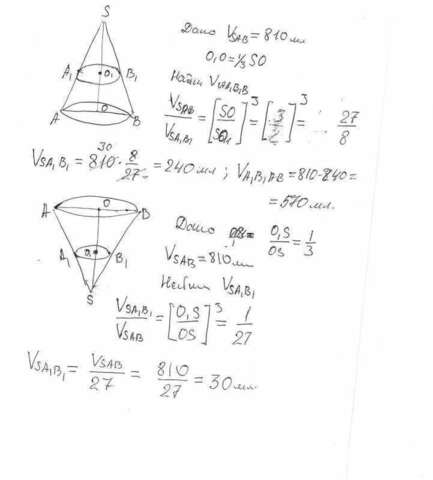 S
A₁ O₁ B₁
A O B
Дано V_SAB = 810 мл
O₁O = 1/3 SO
Найти V_A₁ABB₁
V_SAB / V_SA₁B₁ = [SO / SO₁]³ = [3/2]³ = 27/8
V_SA₁B₁ = 810 · 8/27 = 240 мл ; V_A₁B₁AB = 810-240 =
30
= 570 мл.
A O B
A₁ O₁ B₁
S
Дано O₁S / OS = 1/3
V_SAB = 810 мл
Найти V_SA₁B₁
V_SA₁B₁ / V_SAB = [O₁S / OS]³ = 1/27
V_SA₁B₁ = V_SAB / 27 = 810 / 27 = 30 мл.